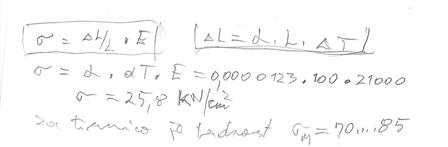 σ = ΔL/L . E   ΔL = α . L . ΔT
σ = α . αT . E = 0,0000123 . 100 . 21000
σ = 25,8 KN/cm²
za tirnico je vednost σM = 70....85